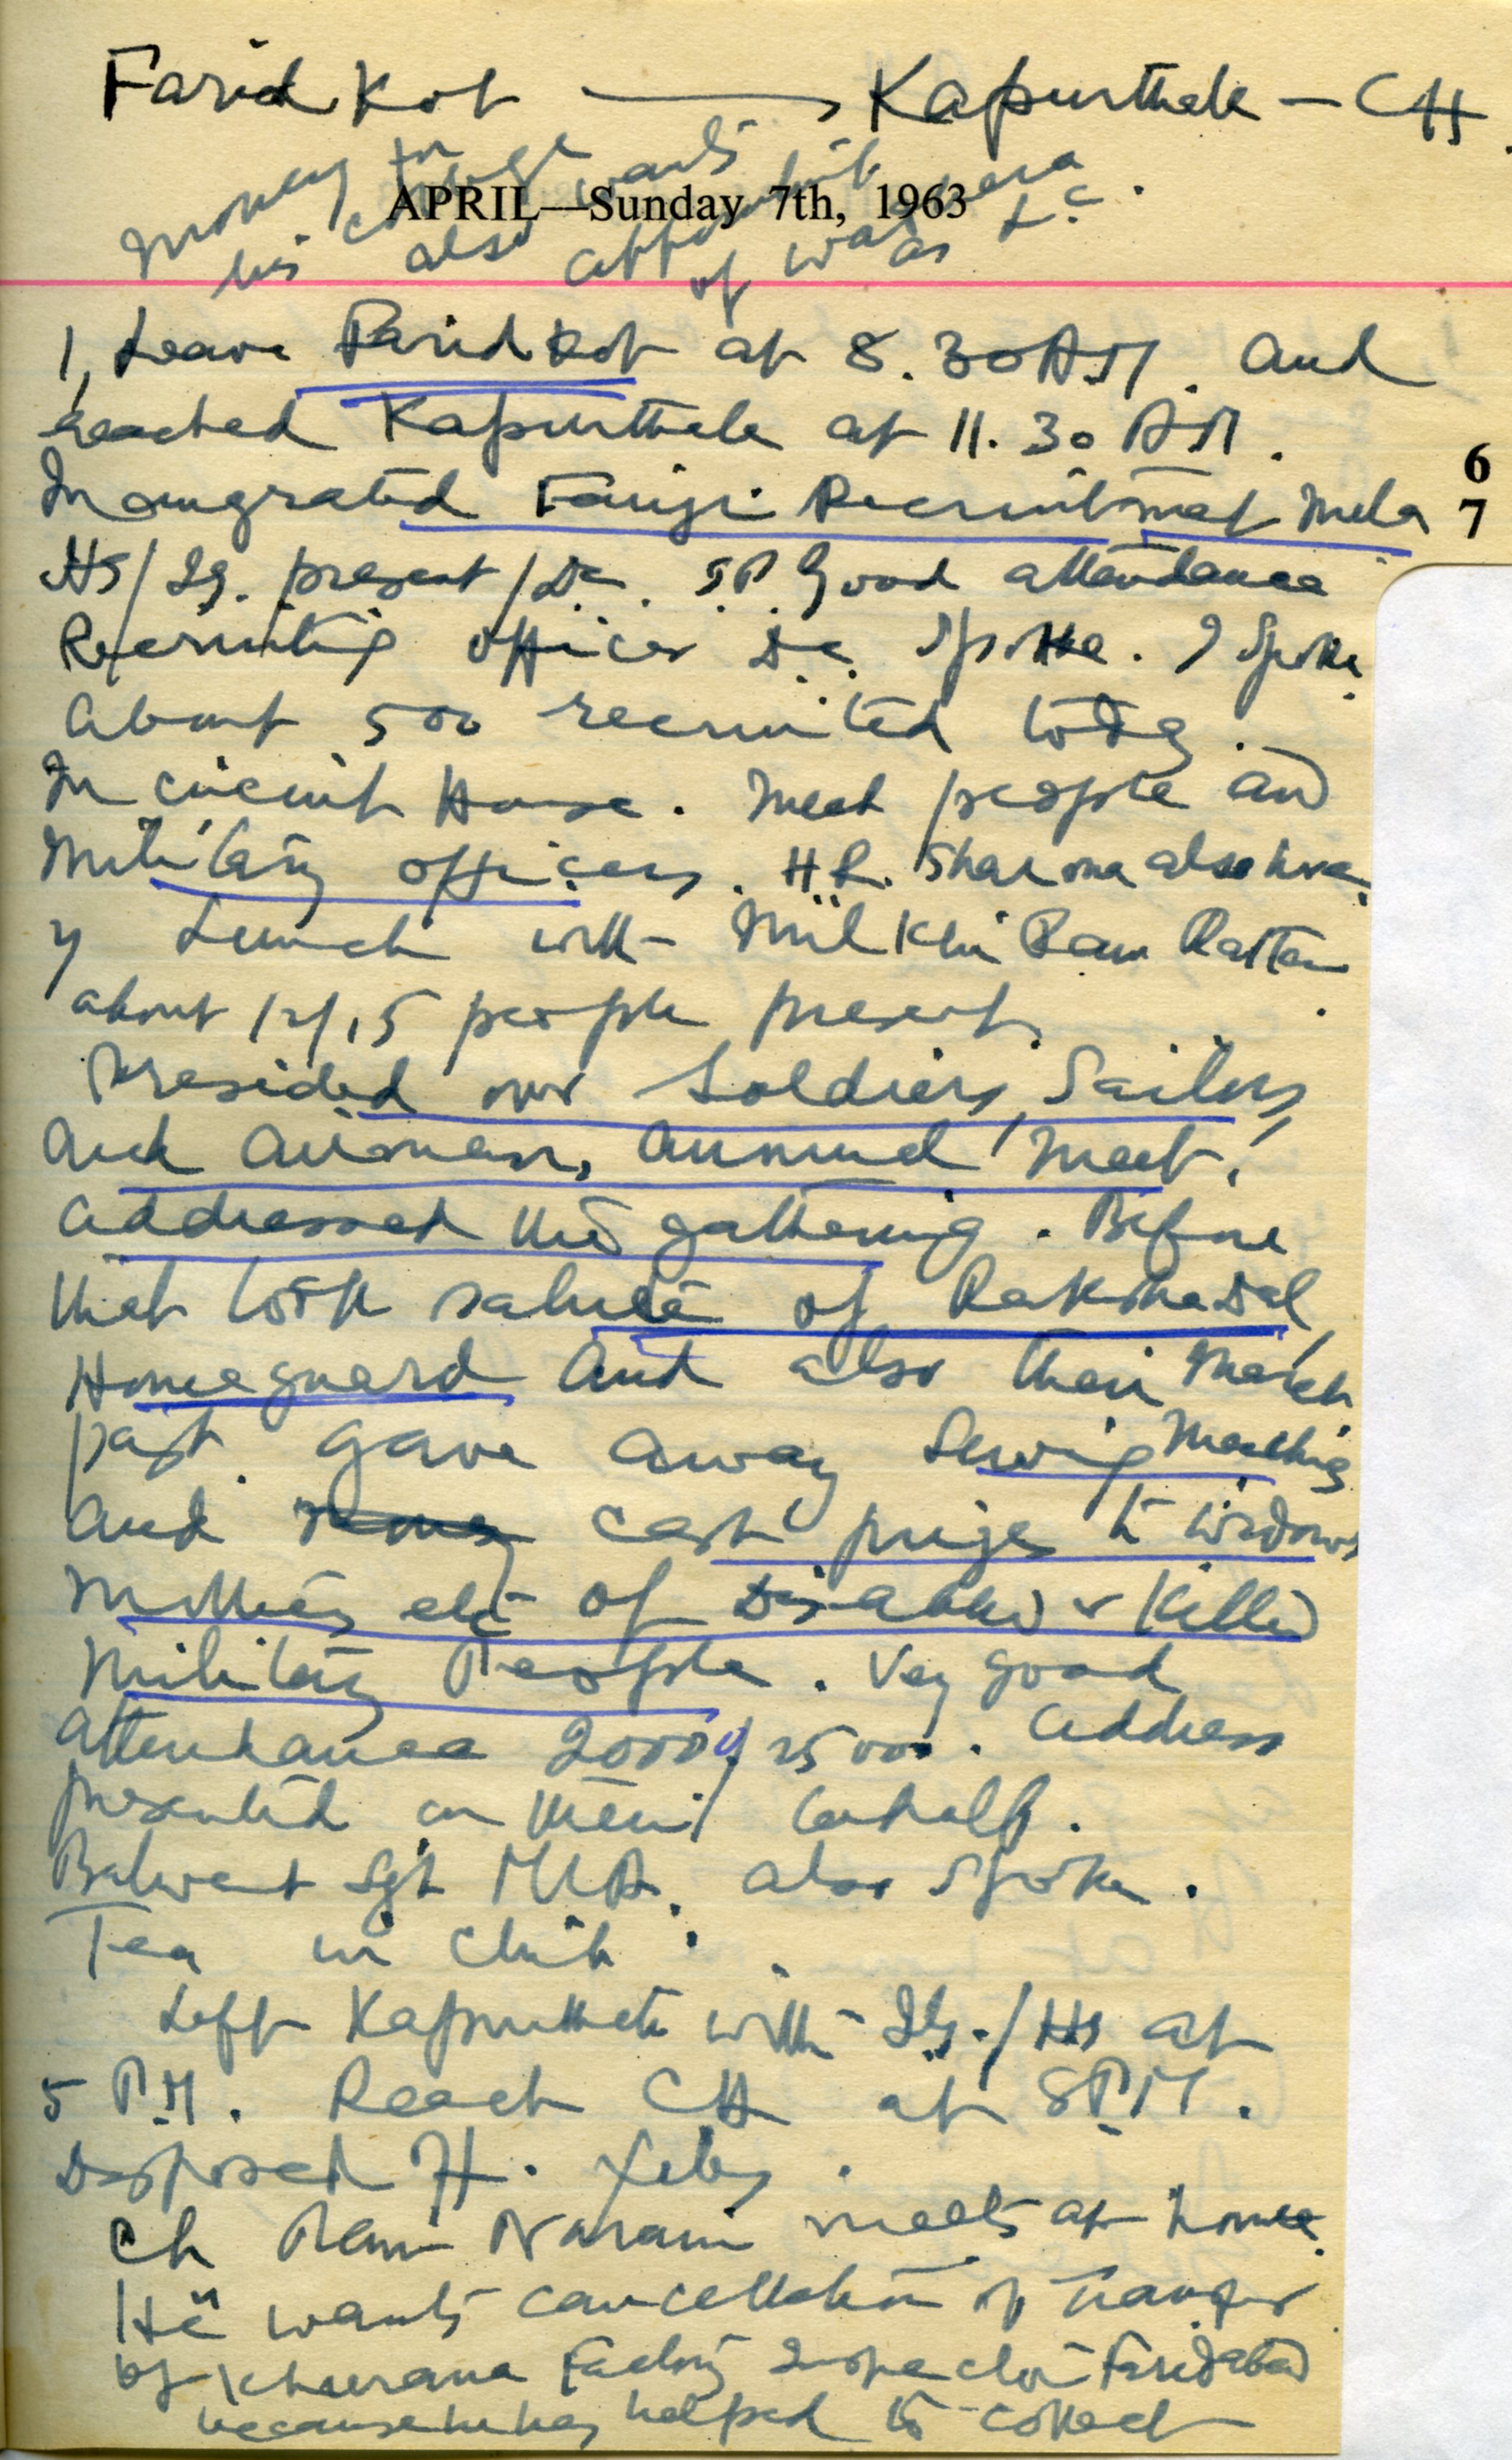 Faridkot → Kapurthala – CH.
money for wants
APRIL—Sunday 7th, 1963
his college also appointment of Wasera as L.C.
1, Leave Faridkot at 8.30 AM. and
reached Kapurthala at 11.30 AM.
Inaugrated Fauji Recruitmet Mela
6
7
HS/IG. present/DC. SP. Good attendance
Recruiting officer DC. spoke. I spoke
About 500 recruited today.
In circuit House. Meet people and
Military officers. H.R. Sharma also here.
Lunch with Milkhi Ram Rattan
about 12/15 people present.
Presided over Soldiers, Sailors,
and airmen, annual meet.
addressed the gathering. Before
that took salute of Raksha Dal,
Homeguard and also their march
past. gave away Sewing Machines
and cash prizes to widows
mothers etc of Disabled & Killed
Military People. Very good
attendance 20000/25000. Address
presented on their behalf.
Balwant Sgh MLA. also spoke.
Tea in Club.
Left Kapurthala with IG./HS at
5 P.M. Reach CH at 8 P.M.
Disposed H. files.
Ch Ram Narain meets at home.
He wants cancellation of transfer
of Khurana Factory Inspector Faridabad
because he has helped to collect